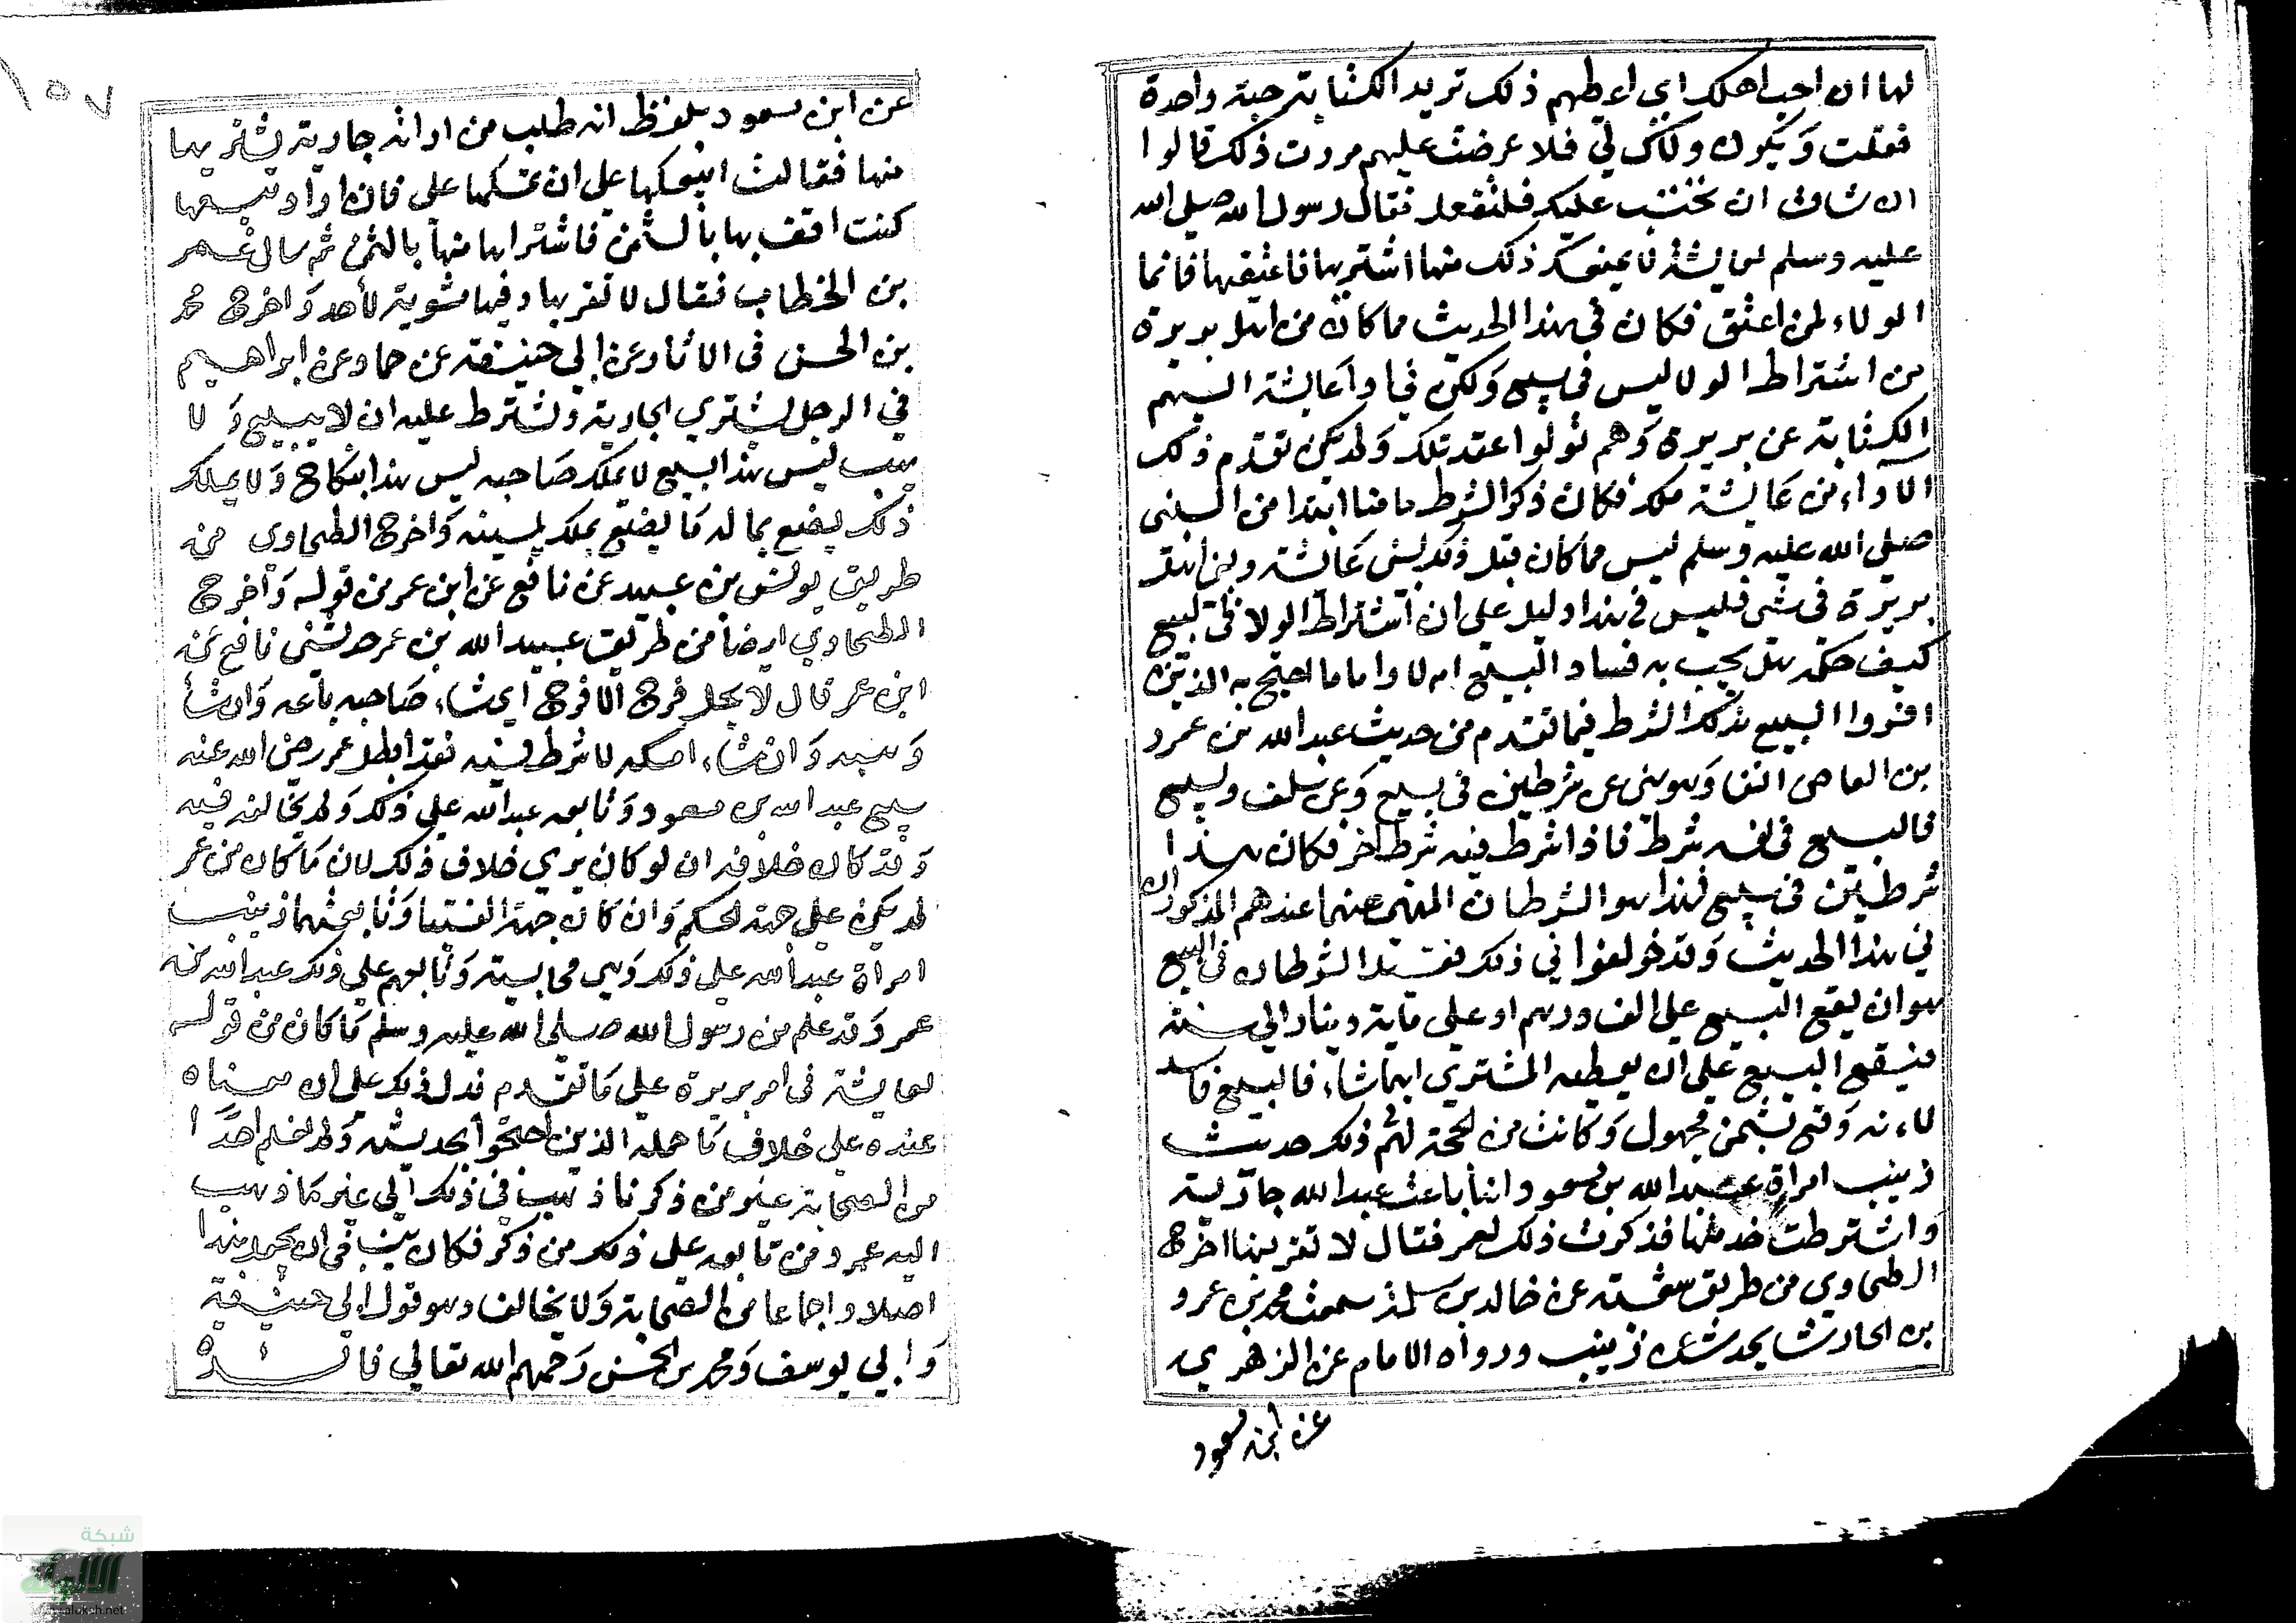 لها ان احب اهلك ان اعطيهم ذلك تريد الكتابة صبة واحدة
فعلت ويكون ولاك لي فلما عرضت عليهم بريرة ذلك قالوا
ان شات ان تحتسب عليك فلتفعل فقال رسول الله صلى الله
عليه وسلم لعايشة لا يمنعك ذلك منها اشتريها فاعتقيها فانما
الولاء لمن اعتق فكان في هذا الحديث مما كان من اهل بريرة
من اشتراط الولا ليس في بيع ولكن في ادا عايشة اليهم
الكتابة عن بريرة وهم تولوا عقد تلك ولم يكن تقدم ذلك
الاداء من عايشة ملك فكان ذكر الشرط هاهنا ابتدا من النبي
صلى الله عليه وسلم ليس مما كان قبل ذلك بين عايشة وبين اهل
بريرة في شي فليس في هذا دليل على ان اشتراط الولا في البيع
كيف حكمه هل يجب به فساد البيع ام لا واما ما احتج به الذين
افسدوا البيع بذلك الشرط فيما تقدم من حديث عبد الله بن عمرو
بن العاص انفا وهو نهى عن شرطين في بيع وعن سلف وبيع
فالبيع في نفسه شرط فاذا شرط فيه شرط اخر فكان هذا
شرطين في بيع فهذا هو الشرطان المنهي عنهما عندهم المذكوران
في هذا الحديث وقد خولفوا في ذلك فقيل الشرطان في البيع
هو ان يقع البيع على الف درهم او على ماية دينار الى سنة
فيقع البيع على ان يعطيه المشتري ايهما شاء فالبيع فاسد
لاءنه وقع بثمن مجهول وكانت من الحجة لهم ذلك حديث
زينب امراة عبد الله بن مسعود انها باعت عبد الله جارية
واشترطت خدمتها فذكرت ذلك لعمر فقال لا تقربنها اخرجه
الطحاوي من طريق شعبة عن خالد بن سلمة سمعت محمد بن عمرو
بن الحارث يحدث عن زينب ورواه الامام عن الزهري
عن ابن مسعود
١٥٧
عن ابن مسعود بلفظ انه طلب من امراته جارية يشتريها
منها فقالت ابيعكها على ان تمسكها علي فان اردت بيعها
كنت احق بها بالثمن فاشتراها منها بالثمن ثم سال عمر
بن الخطاب فقال لا تقربها وفيها مثوية لأحد واخرج محمد
بن الحسن في الاثار عن ابي حنيفة عن حماد عن ابراهيم
في الرجل يشتري الجارية ويشترط عليه ان لا يبيع ولا
يهب ليس هذا ببيع لا يملك صاحبه ليس هذا بنكاح ولا بملك
ذلك يصنع بماله ما يصنع بملك يمينه واخرج الطحاوي من
طريق يونس بن عبيد عن نافع عن ابن عمر من قوله واخرج
الطحاوي ايضا من طريق عبيد الله بن عمر حدثني نافع عن
ابن عمر قال لا يحل فرج الا فرج ان شاء صاحبه باعه وان شا
وهبه وان شاء امسكه لا شرط فيه فقد ابطل عمر رضي الله عنه
بيع عبد الله بن مسعود وتابعه عبد الله على ذلك ولم يخالفه فيه
وقد كان خلافه ان لو كان يرى خلاف ذلك لان ما كان من عمر
لم يكن على جهة الحكم وان كان جهة الفتيا وتابعتهما زينب
امراة عبد الله على ذلك وهي صحابية وتابعهم على ذلك عبد الله بن
عمر وقد علم من رسول الله صلى الله عليه وسلم ما كان من قوله
لعايشة في امر بريرة على ما تقدم فدل ذلك على ان معناه
عنده على خلاف ما حمله الذين احتجوا بحديثه ولم نعلم احدا
من الصحابة غير من ذكرنا ذهب في ذلك الى غير ما ذهب
اليه عمر ومن تابعه على ذلك ممن ذكر فكان ينبغي ان يجعل هذا
اصلا واجماعا من الصحابة ولا يخالف وهو قول ابي حنيفة
وابي يوسف ومحمد بن الحسن رحمهم الله تعالى فائدة
شبكة
الألوكة
www.alukah.net